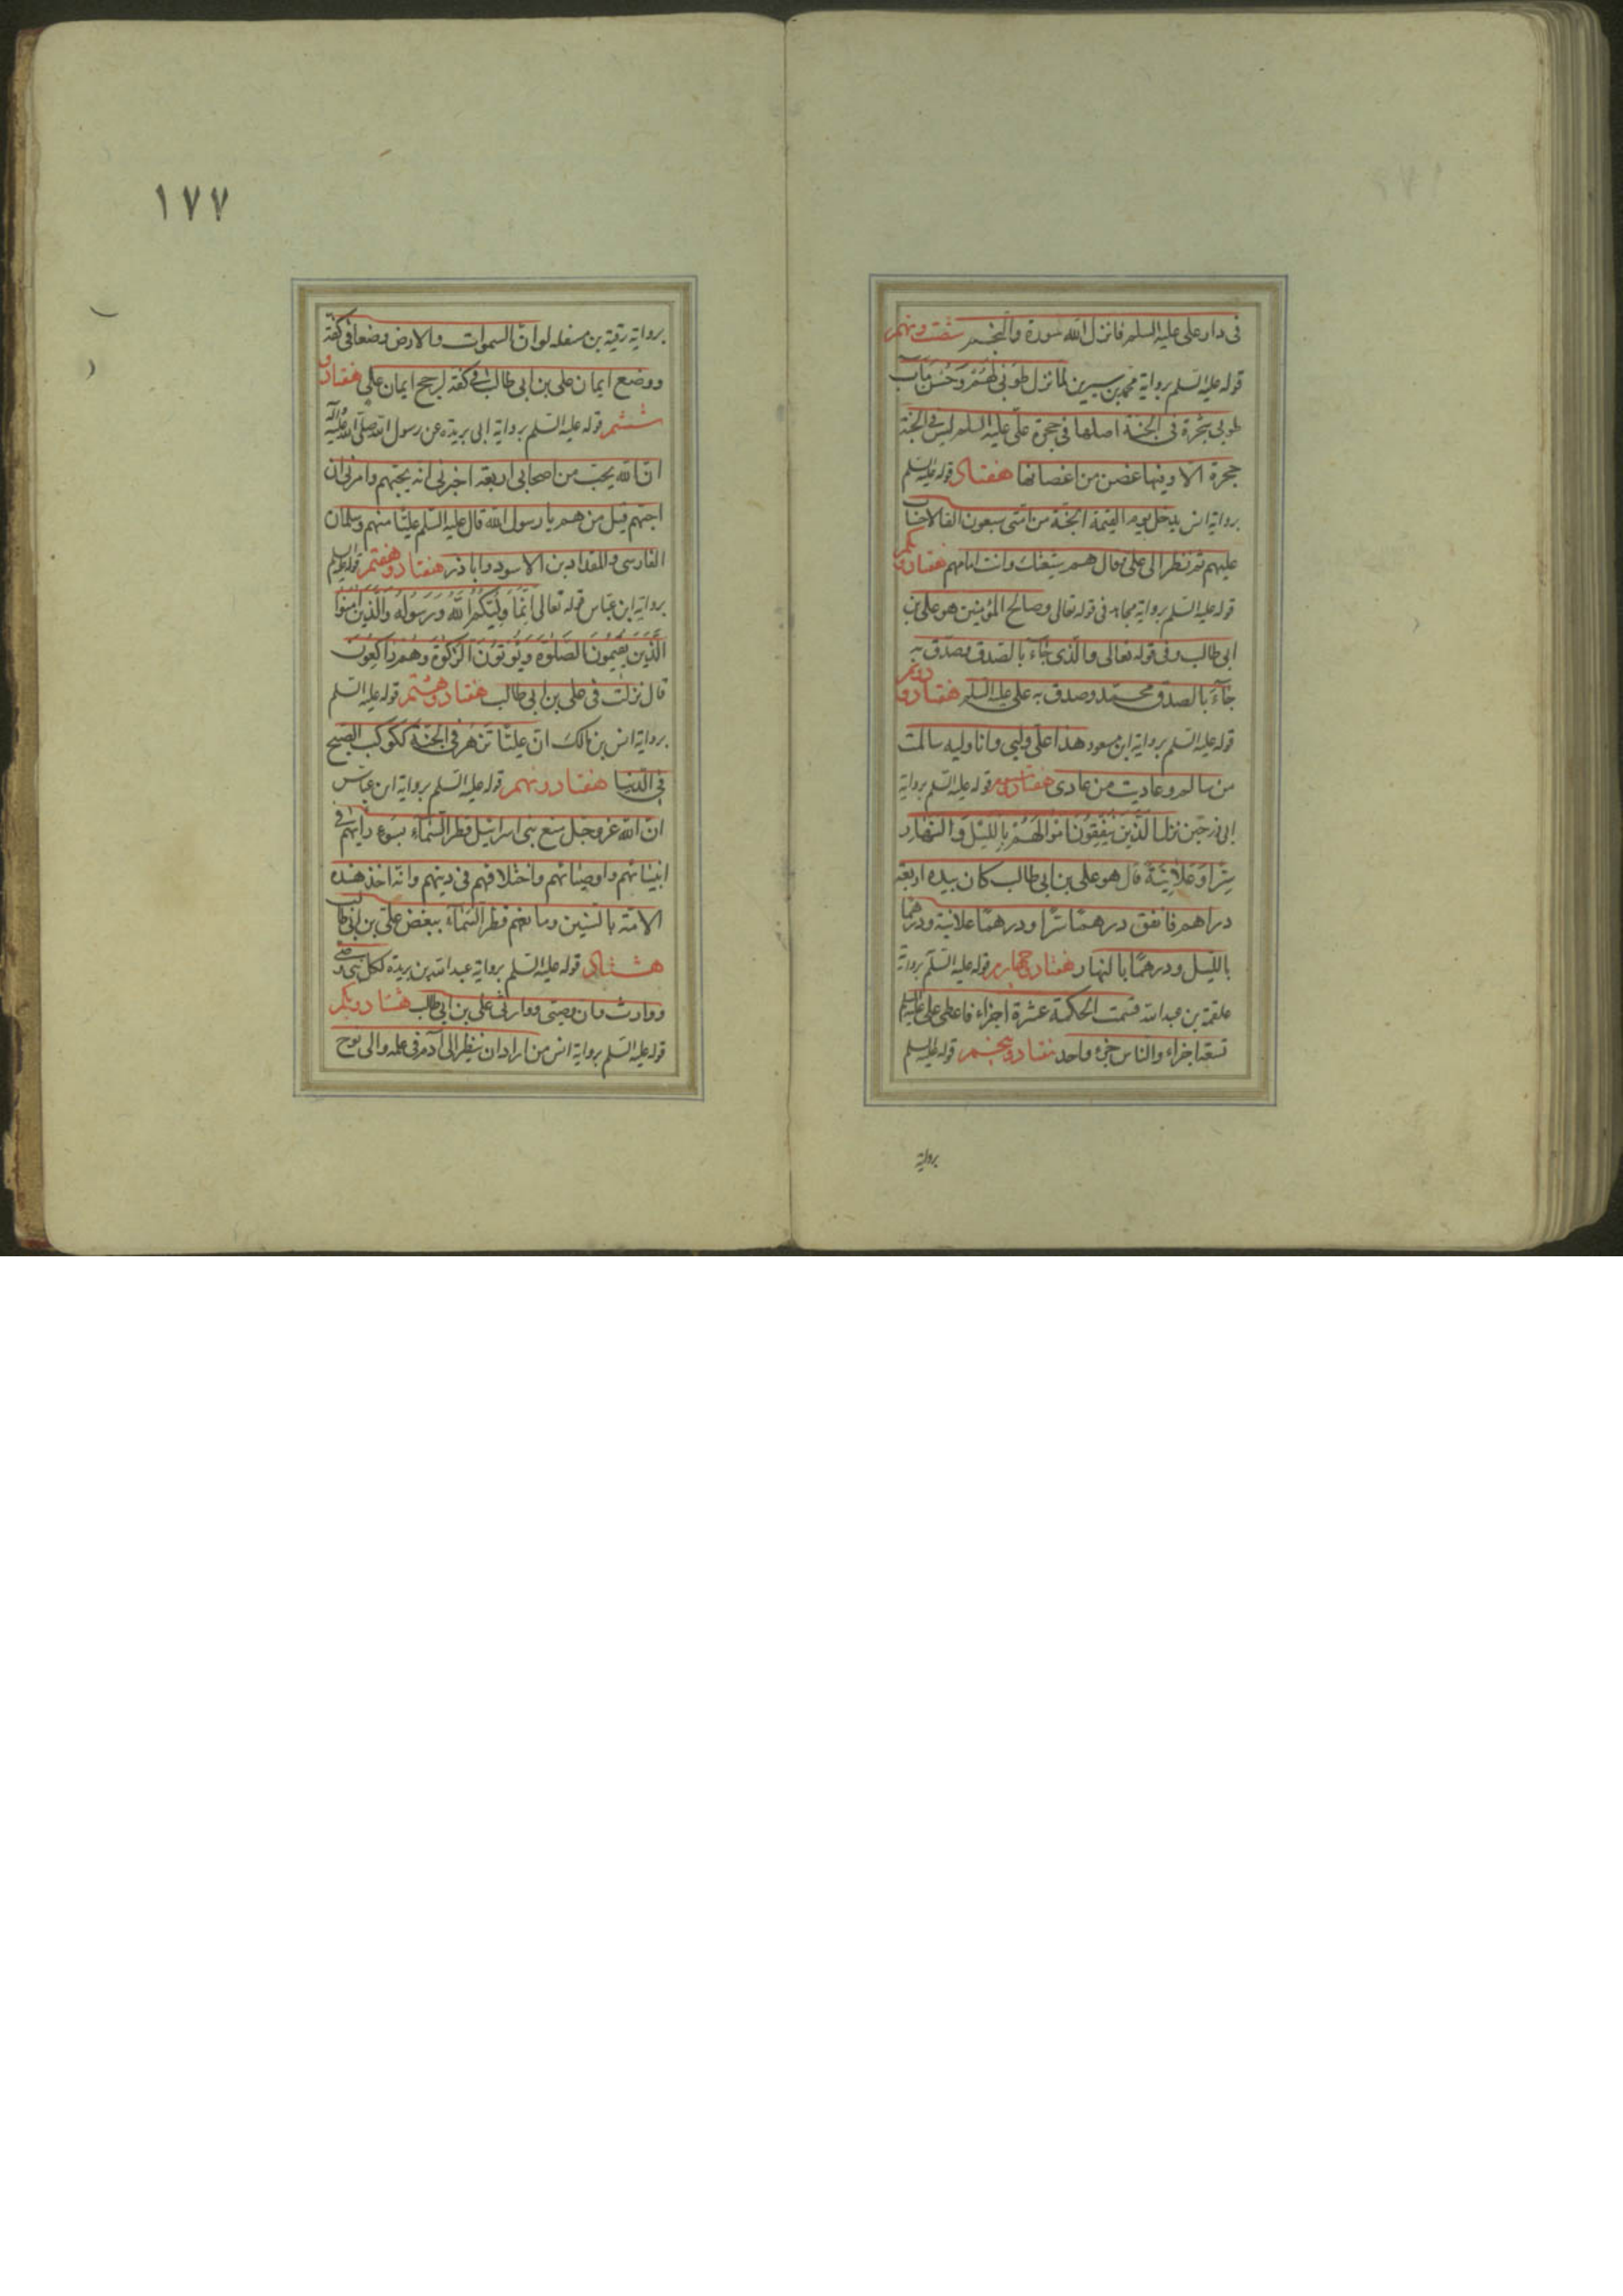 فی دار علی علیه السلم فانزل الله سورة والنجم شصت ونهم
قوله علیه السلم بروایة محمد بن سیرین لما نزل طوبی لهم وحسن مآب
طوبی شجرة فی الجنة اصلها فی حجرة علی علیه السلم لیس فی الجنة
حجرة الا وفیها غصن من اغصانها هفتاد قوله علیه السلم
بروایة انس یدخل یوم القیمة الجنة من امتی سبعون الفا لا حساب
علیهم ثم نظر الی علی فقال هم شیعتک وانت امامهم هفتاد و یکم
قوله علیه السلم بروایة مجاهد فی قوله تعالی وصالح المؤمنین هو علی بن
ابی طالب وفی قوله تعالی والذی جآء بالصدق وصدق به
جآء بالصدق محمد وصدق به علی علیه السلم هفتاد و دوم
قوله علیه السلم بروایة ابن مسعود هذا علی ولیی وانا ولیه سالمت
من سالم وعادیت من عادی هفتاد وسوم قوله علیه السلم بروایة
ابی ذر حین نزلت الذین ینفقون اموالهم باللیل والنهار
سرا وعلانیة قال هو علی بن ابی طالب کان بیده اربعة
دراهم فانفق درهما سرا ودرهما علانیة ودرهما
باللیل ودرهما بالنهار هفتاد وچهارم قوله علیه السلم بروایة
علقمة بن عبدالله قسمت الحکمة عشرة اجزاء فاعطی علی علیه السلم
تسعة اجزاء والناس جزء واحد هفتاد وپنجم قوله علیه السلم
بروایة
١٧٧
بروایة رقیة بن مصقله لو ان السموات والارض وضعتا فی کفة
ووضع ایمان علی بن ابی طالب فی کفة لرجح ایمان علی هفتاد و
ششم قوله علیه السلم بروایة ابی بریده عن رسول الله صلی الله علیه وآله
ان الله یحب من اصحابی اربعة اخبرنی انه یحبهم وامرنی ان
احبهم قیل من هم یا رسول الله قال علیه السلم علیا منهم وسلمان
الفارسی والمقداد بن الاسود وابا ذر هفتاد وهفتم قوله علیه السلم
بروایة ابن عباس قوله تعالی انما ولیکم الله ورسوله والذین امنوا
الذین یقیمون الصلوة ویؤتون الزکوة وهم راکعون
قال نزلت فی علی بن ابی طالب هفتاد وهشتم قوله علیه السلم
بروایة انس بن مالک ان علیا تزهر فی الجنة ککوکب الصبح
فی الدنیا هفتاد و نهم قوله علیه السلم بروایة ابن عباس
ان الله عز وجل منع بنی اسرائیل قطر السمآء بسوء رأیهم فی
انبیائهم واوصیائهم واختلافهم فی دینهم وانه اخذ هذه
الامة بالسنین ومانعهم قطر السمآء ببغض علی بن ابی طالب
هشتاد قوله علیه السلم بروایة عبدالله بن بریده لکل نبی وصی
ووارث وان وصیی ووارثی علی بن ابی طالب هشتاد ویکم
قوله علیه السلم بروایة انس من اراد ان ینظر الی آدم فی علمه والی نوح